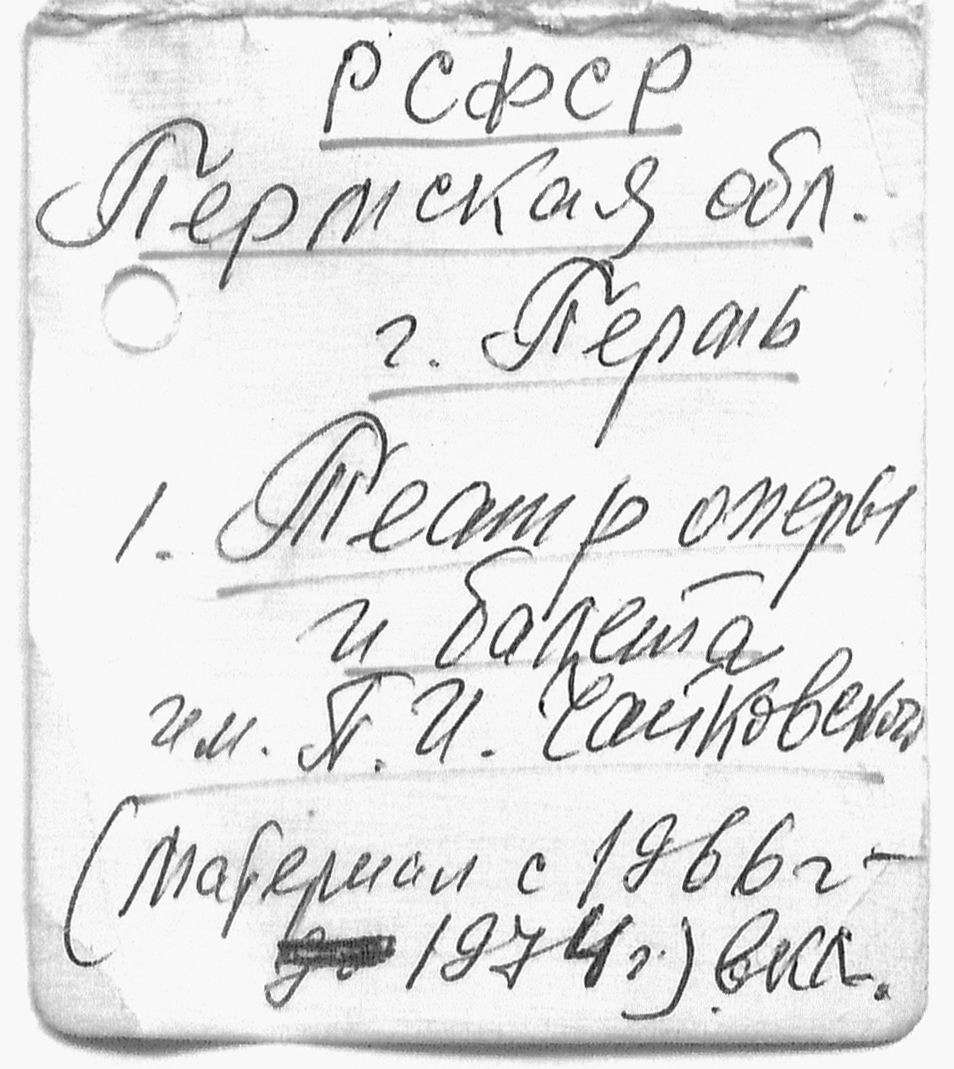 РСФСР
Пермская обл.
г. Пермь
1. Театр оперы
и балета
им. П. И. Чайковского
(материал с 1966 г -
1974 г.) вкл.